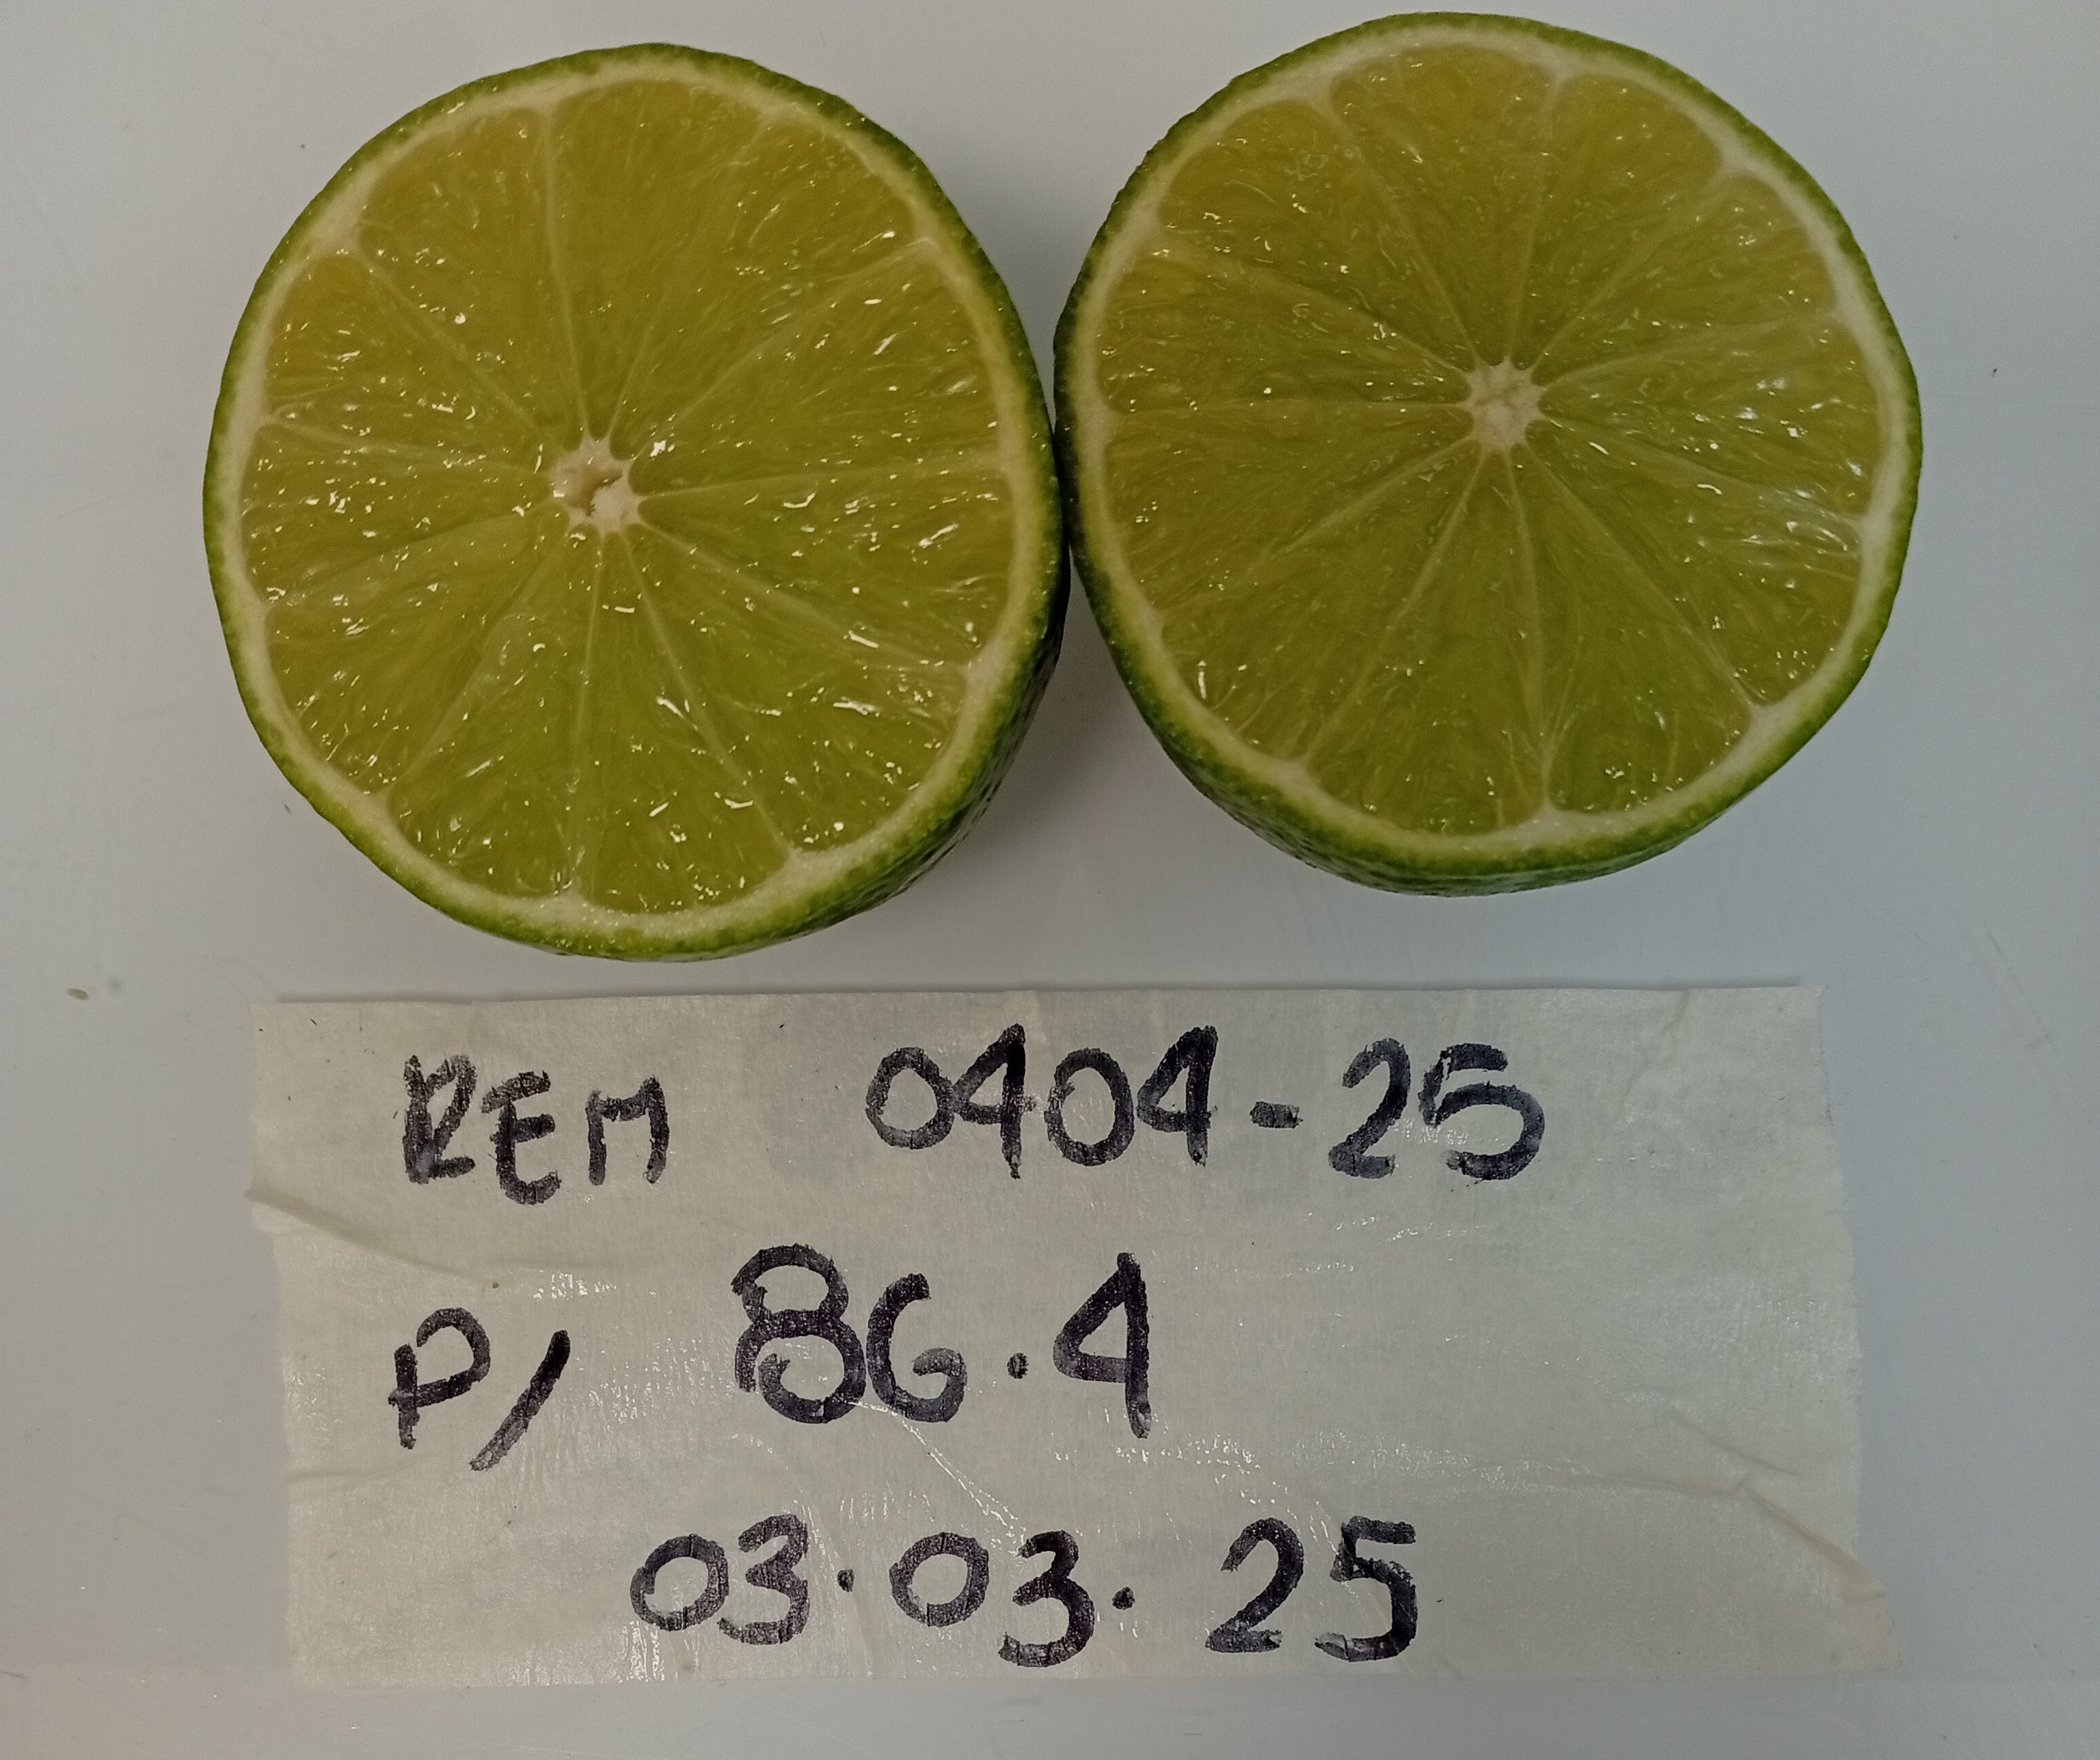 REM 0404-25
P/ 86.4
03.03.25